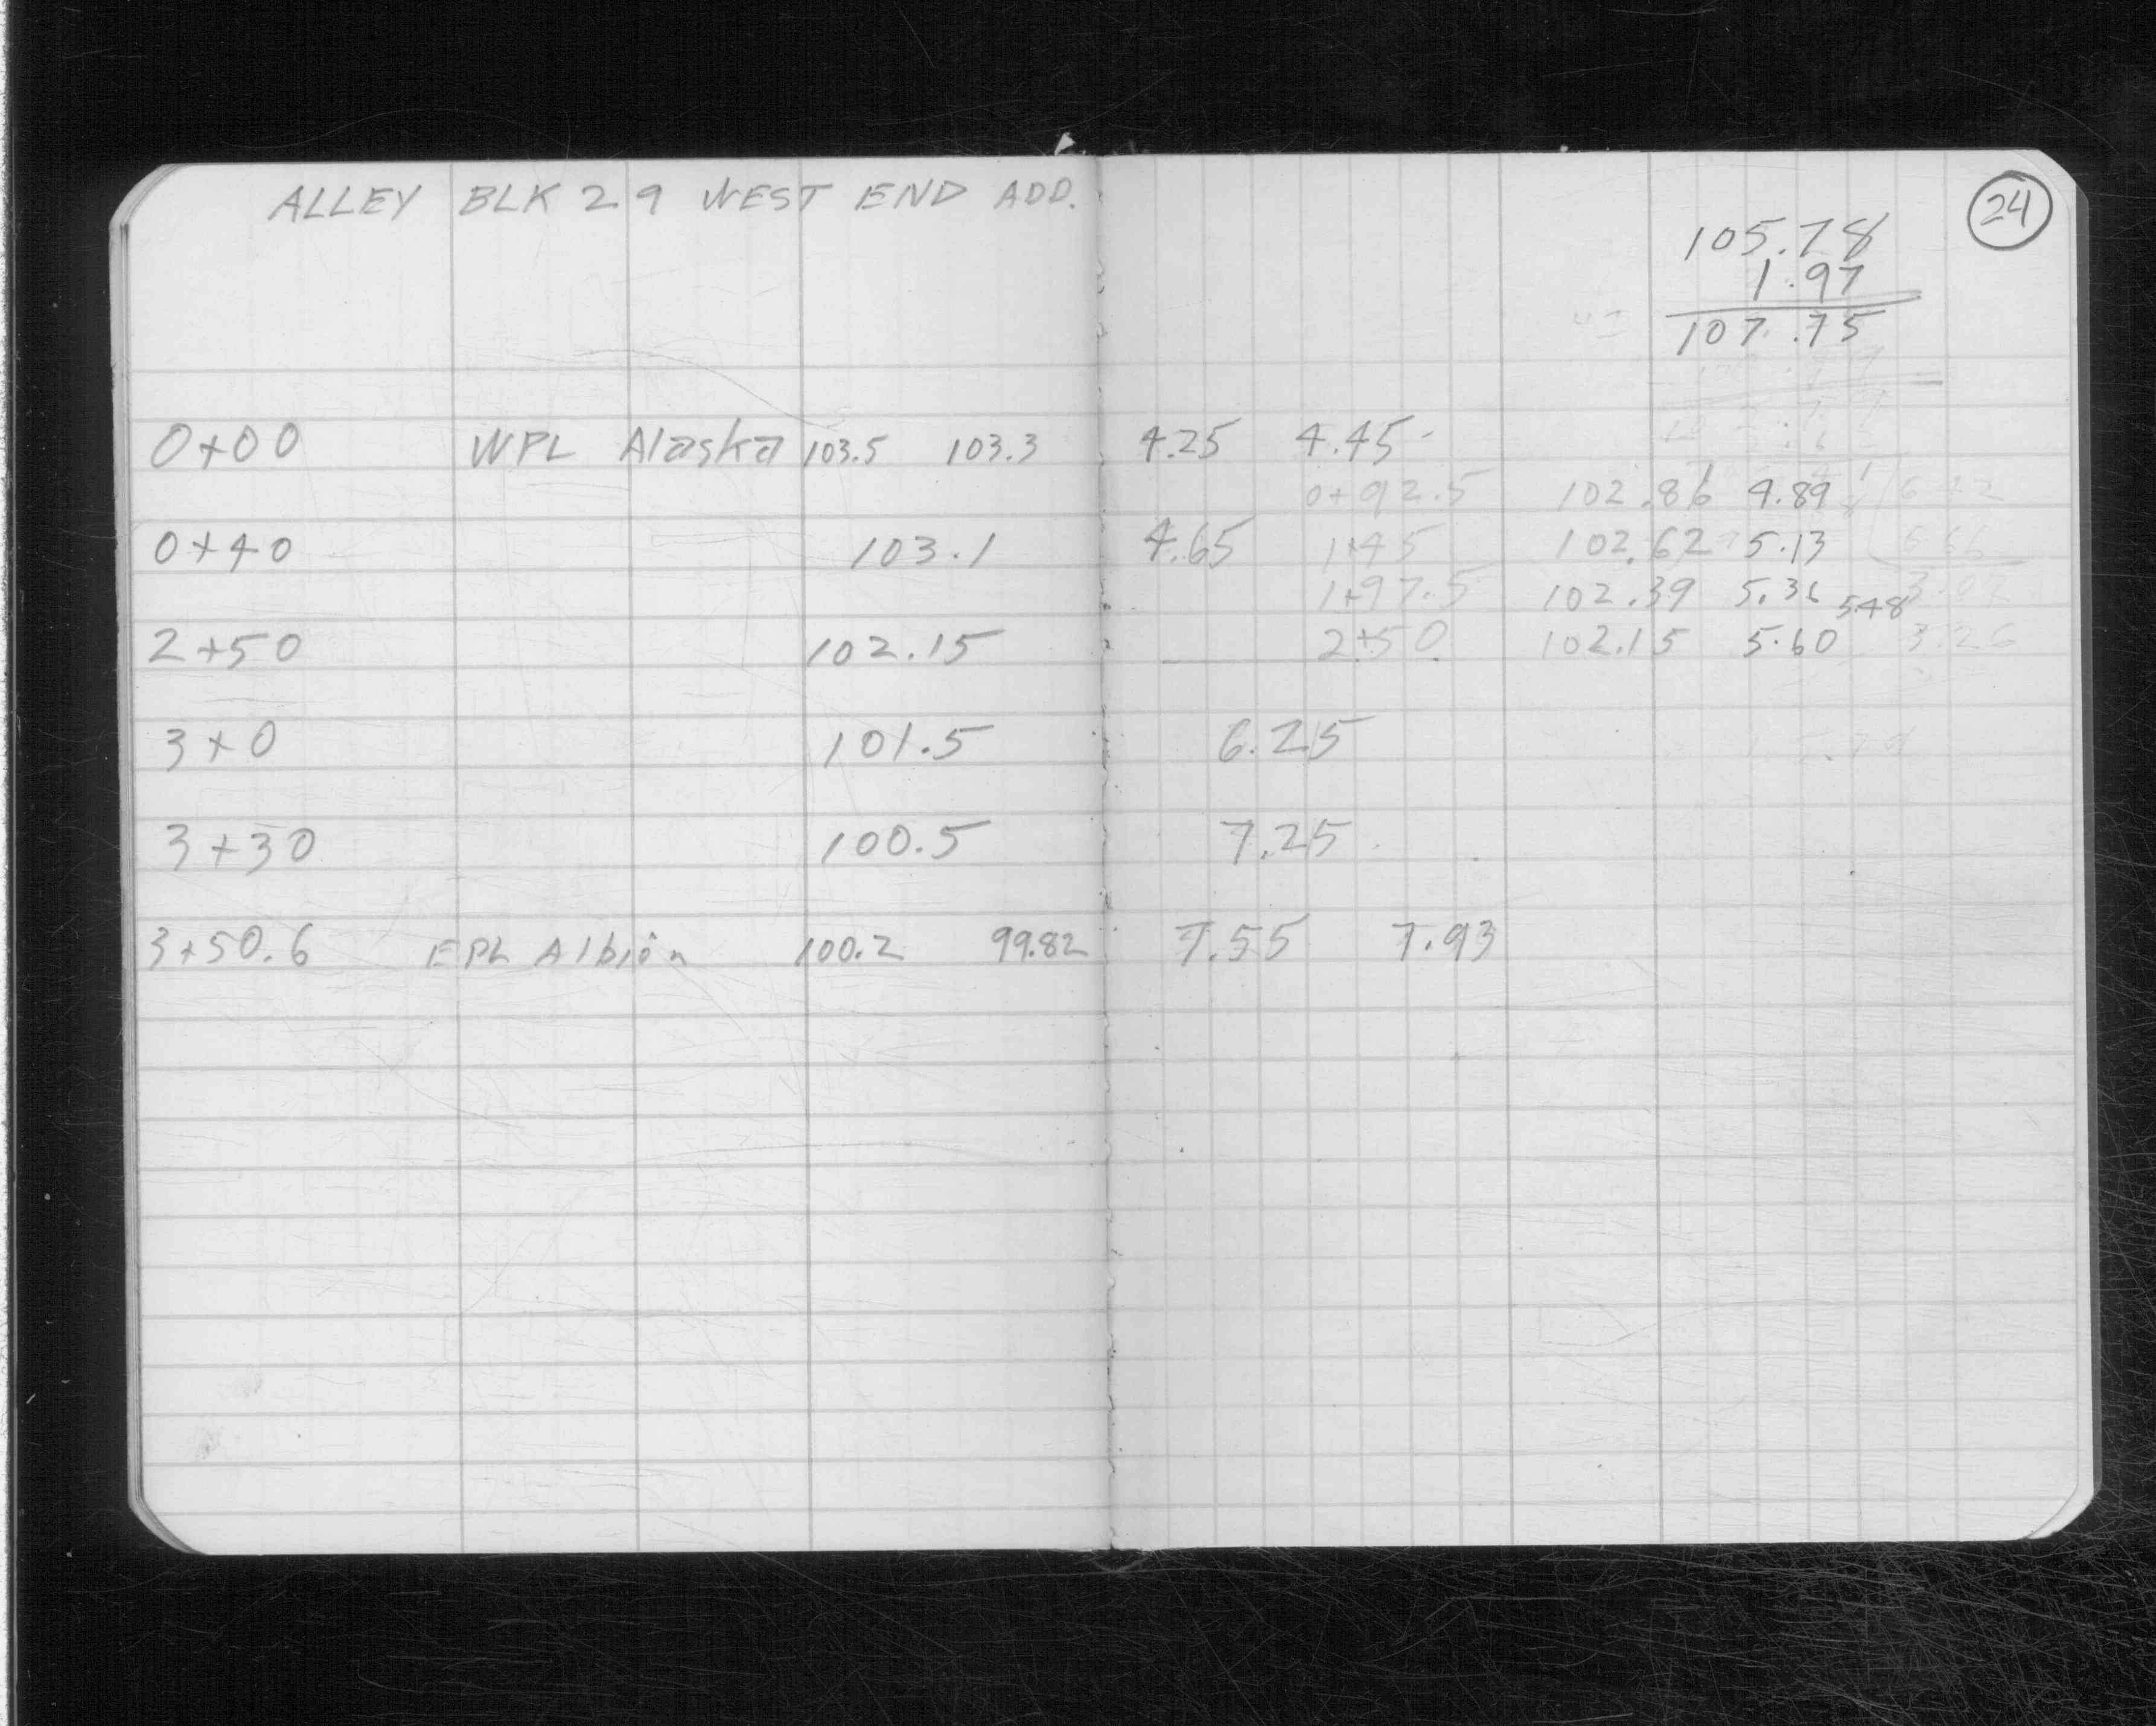 ALLEY BLK 29 WEST END ADD.
24
105.78
1.97
107.75
0+00 WPL Alaska 103.5 103.3 4.25 4.45
0+92.5 102.86 4.89
0+40 103.1 4.65 1+45 102.62 5.13
1+97.5 102.39 5.36 5.48
2+50 102.15 2+50 102.15 5.60 3.26
3+0 101.5 6.25
3+30 100.5 7.25
3+50.6 EPL Albion 100.2 99.82 7.55 7.93